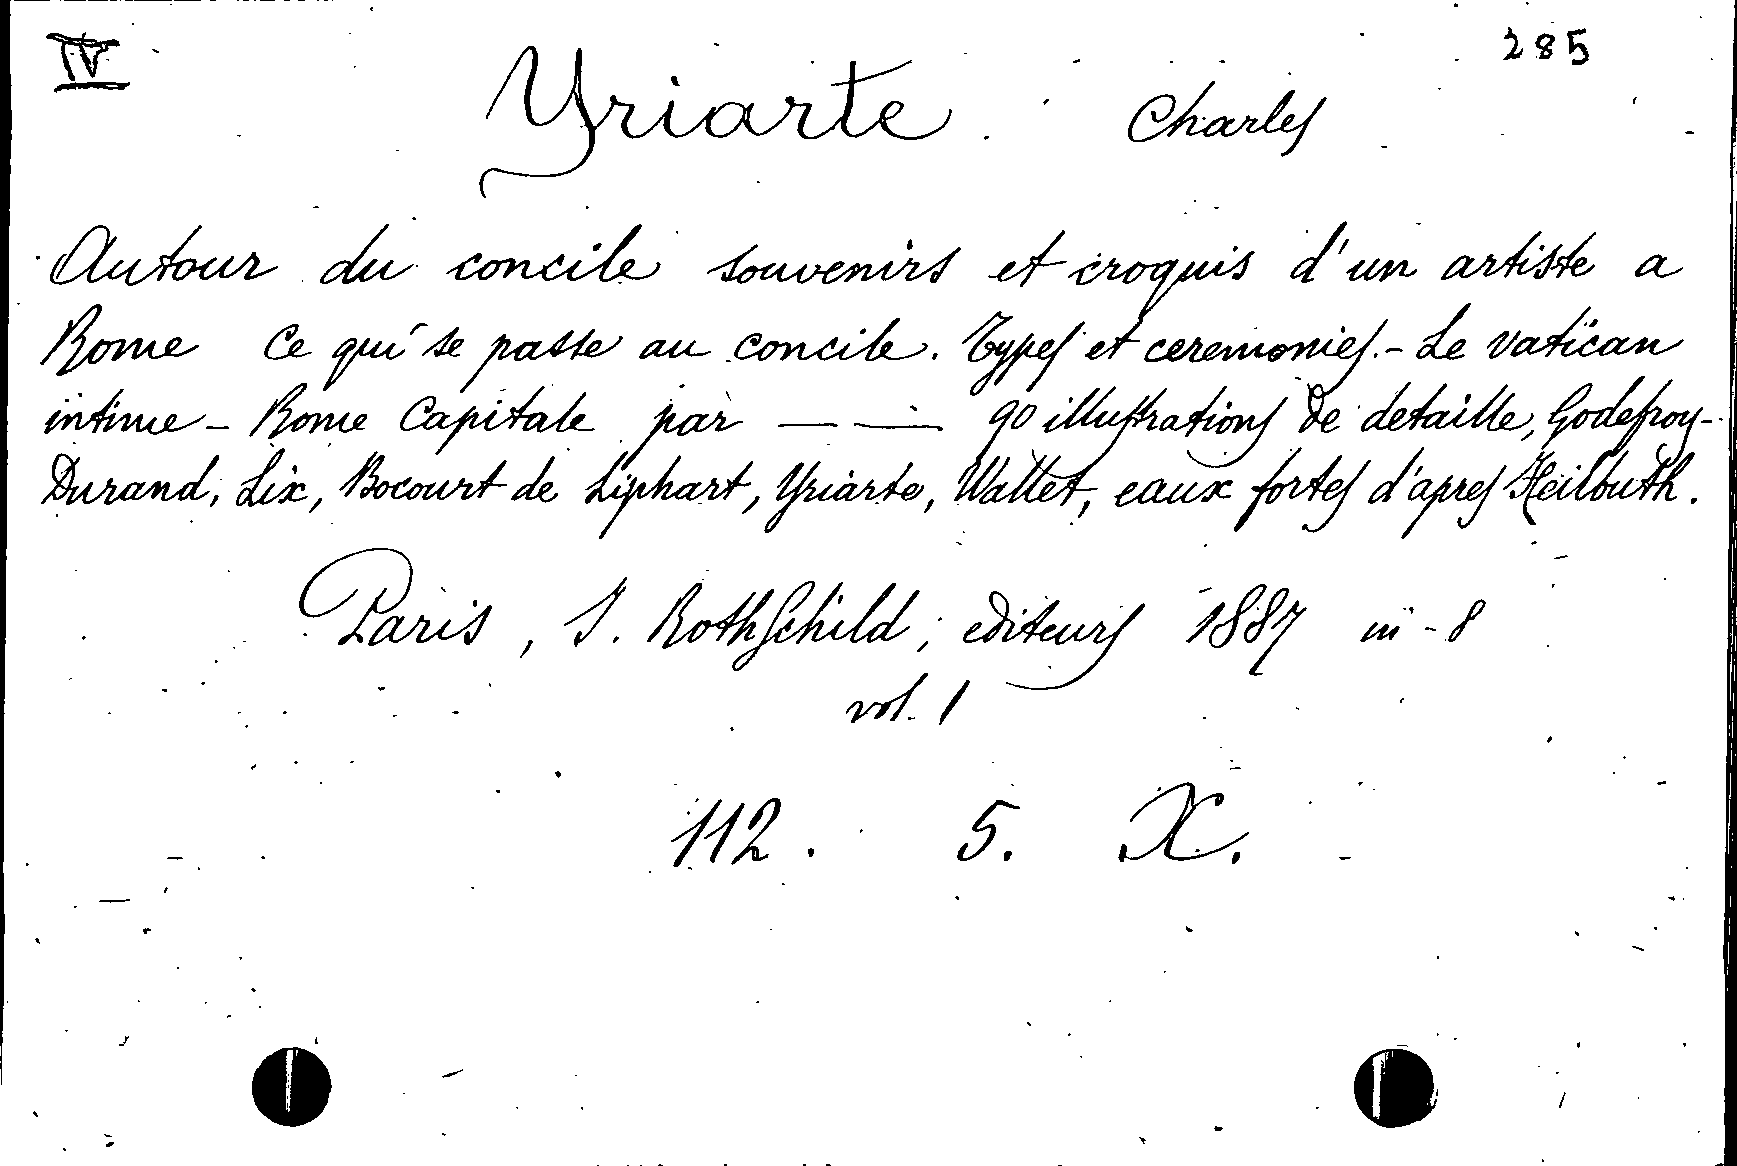 IV 285
Yriarte Charles
Autour du concile souvenirs et croquis d'un artiste a
Rome Ce qui se passe au concile. Types et ceremonies. - Le Vatican
intime - Rome Capitale par — — 90 illustrations de detaille, Godefroy-
Durand, Lix, Bocourt de Liphart, Yriarte, Wallet, eaux fortes d'apres Heilbuth.
Paris, J. Rothschild, editeurs 1887 in-8
vol. 1
112. 5. X.